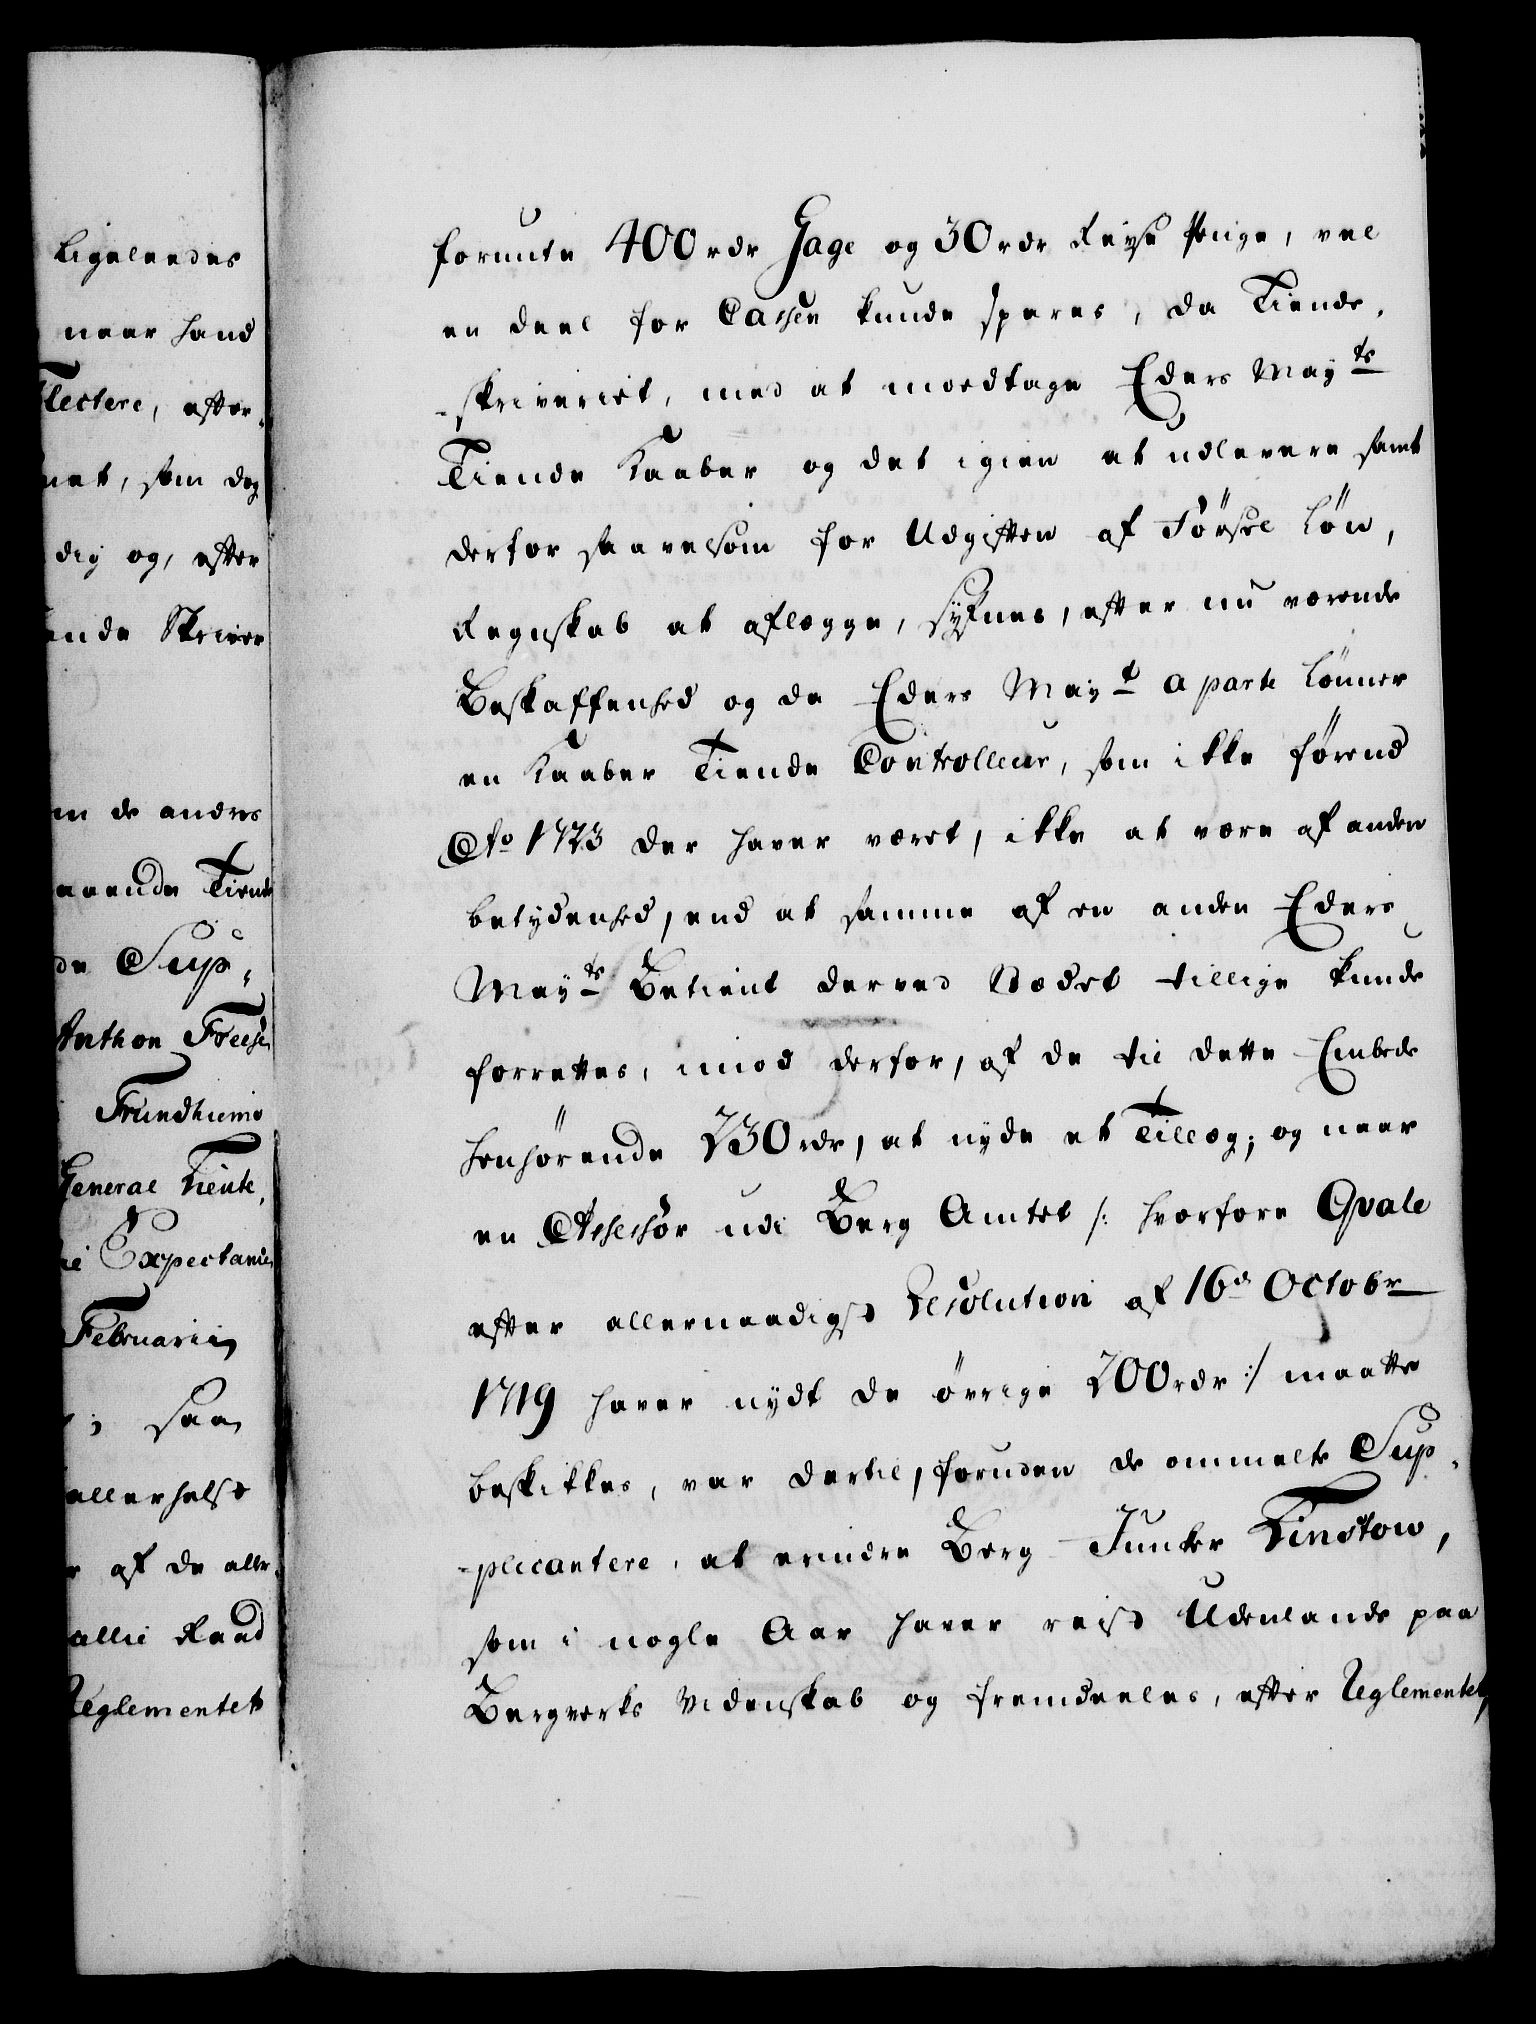 Ligeleedes
naar hand
flectere, efter-
net, som dog
dig og, efter
ende Skriver
m de andres
arende Tiende
de Sup-
Anthon Freese
Trundhiems
General Tiente,
Expectance
Februarii
; saa
allerhelst
af de aller-
allie Raad
Reglementet
forundte 400 rdr Gage og 30 rdr Reyse Penge, vel
en deel for Cassen kunde spares, da Tiende-
-skriveriet, med at modtage Eders Mayts
Tiende Kaaber og det igien at udlevere samt
derfor saavelsom for Udgiften af Førsel Løn,
Regnskab at aflægge, synes, efter nu værende
Beskaffenhed og da Eders Mayt a parte lønner
en Kaaber Tiende Controlleur, som ikke førend
Ao 1723 der haver været, ikke at være af anden
betydenhed, end at samme af en anden Eders
Mayts Betient derved Stædet tillige kunde
forrettes, imod derfor, af de til dette Embede
henhørende 230 rdr, at nyde et Tillæg; og naar
en Assessor udi Berg Amtet /: hvorfore Qvale
efter allernaadigst Resolution af 16de Octobr
1719 haver nydt de øvrige 200 rdr :/ maatte
beskikkes, var dertil, foruden de ommelte Sup-
-plicantere, at erindre Berg Junker Tinstow,
som i nogle Aar haver reist Udenlands paa
Bergverks Videnskab og fremdeeles, efter Reglementet,